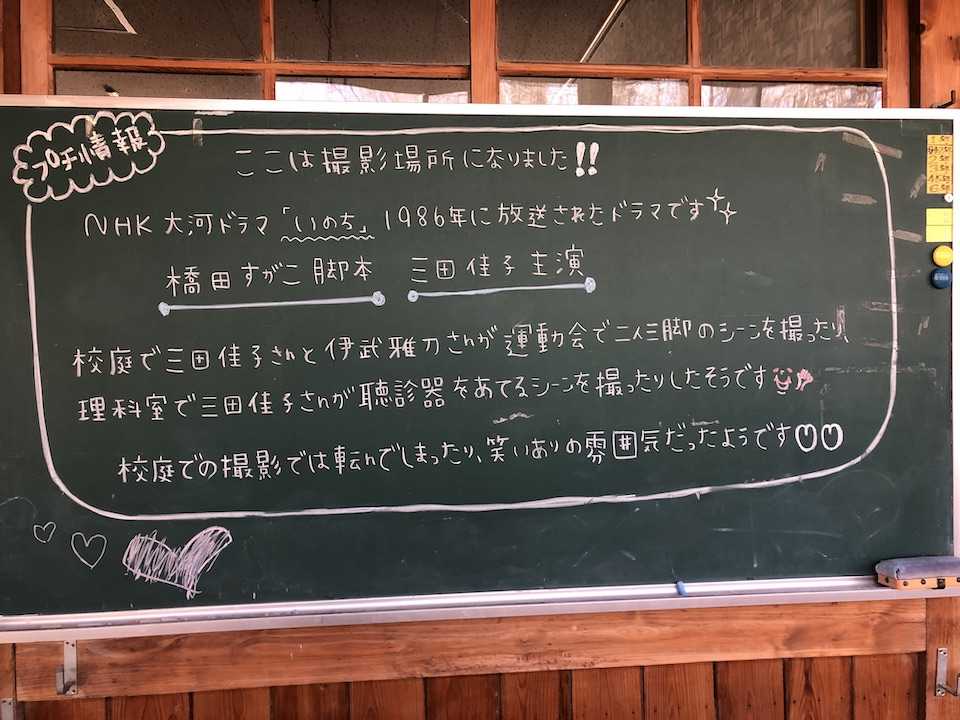 プチ情報
ここは撮影場所になりました!!
NHK 大河ドラマ「いのち」1986年に放送されたドラマです
橋田すがこ脚本 三田佳子主演
校庭で三田佳子さんと伊武雅刀さんが運動会で二人三脚のシーンを撮ったり、
理科室で三田佳子さんが聴診器をあてるシーンを撮ったりしたそうです
校庭での撮影では転んでしまったり、笑いありの雰囲気だったようです